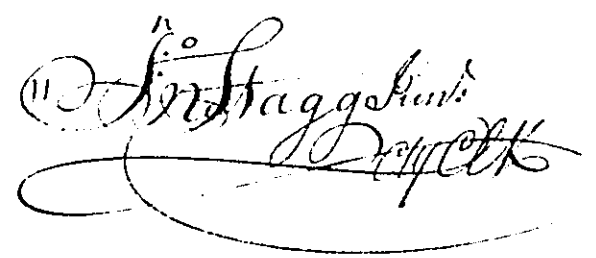 Jnº Stagg Junr:
Clk